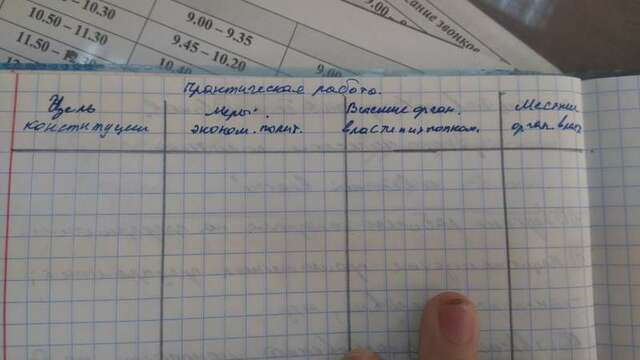 ание звонков
9.00 – 9.35
10.50 – 11.30
9.45 – 10.20
11.50 –
10.40
9.00
Практическая работа.
Цель
конституции
Меры
эконом. полит.
Высшие орган.
власти и их полном.
Местные
орган. власт